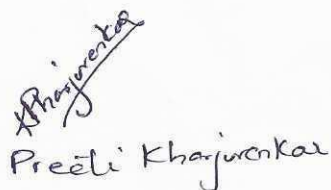 PKharjurenkar
Preeti Kharjurenkar